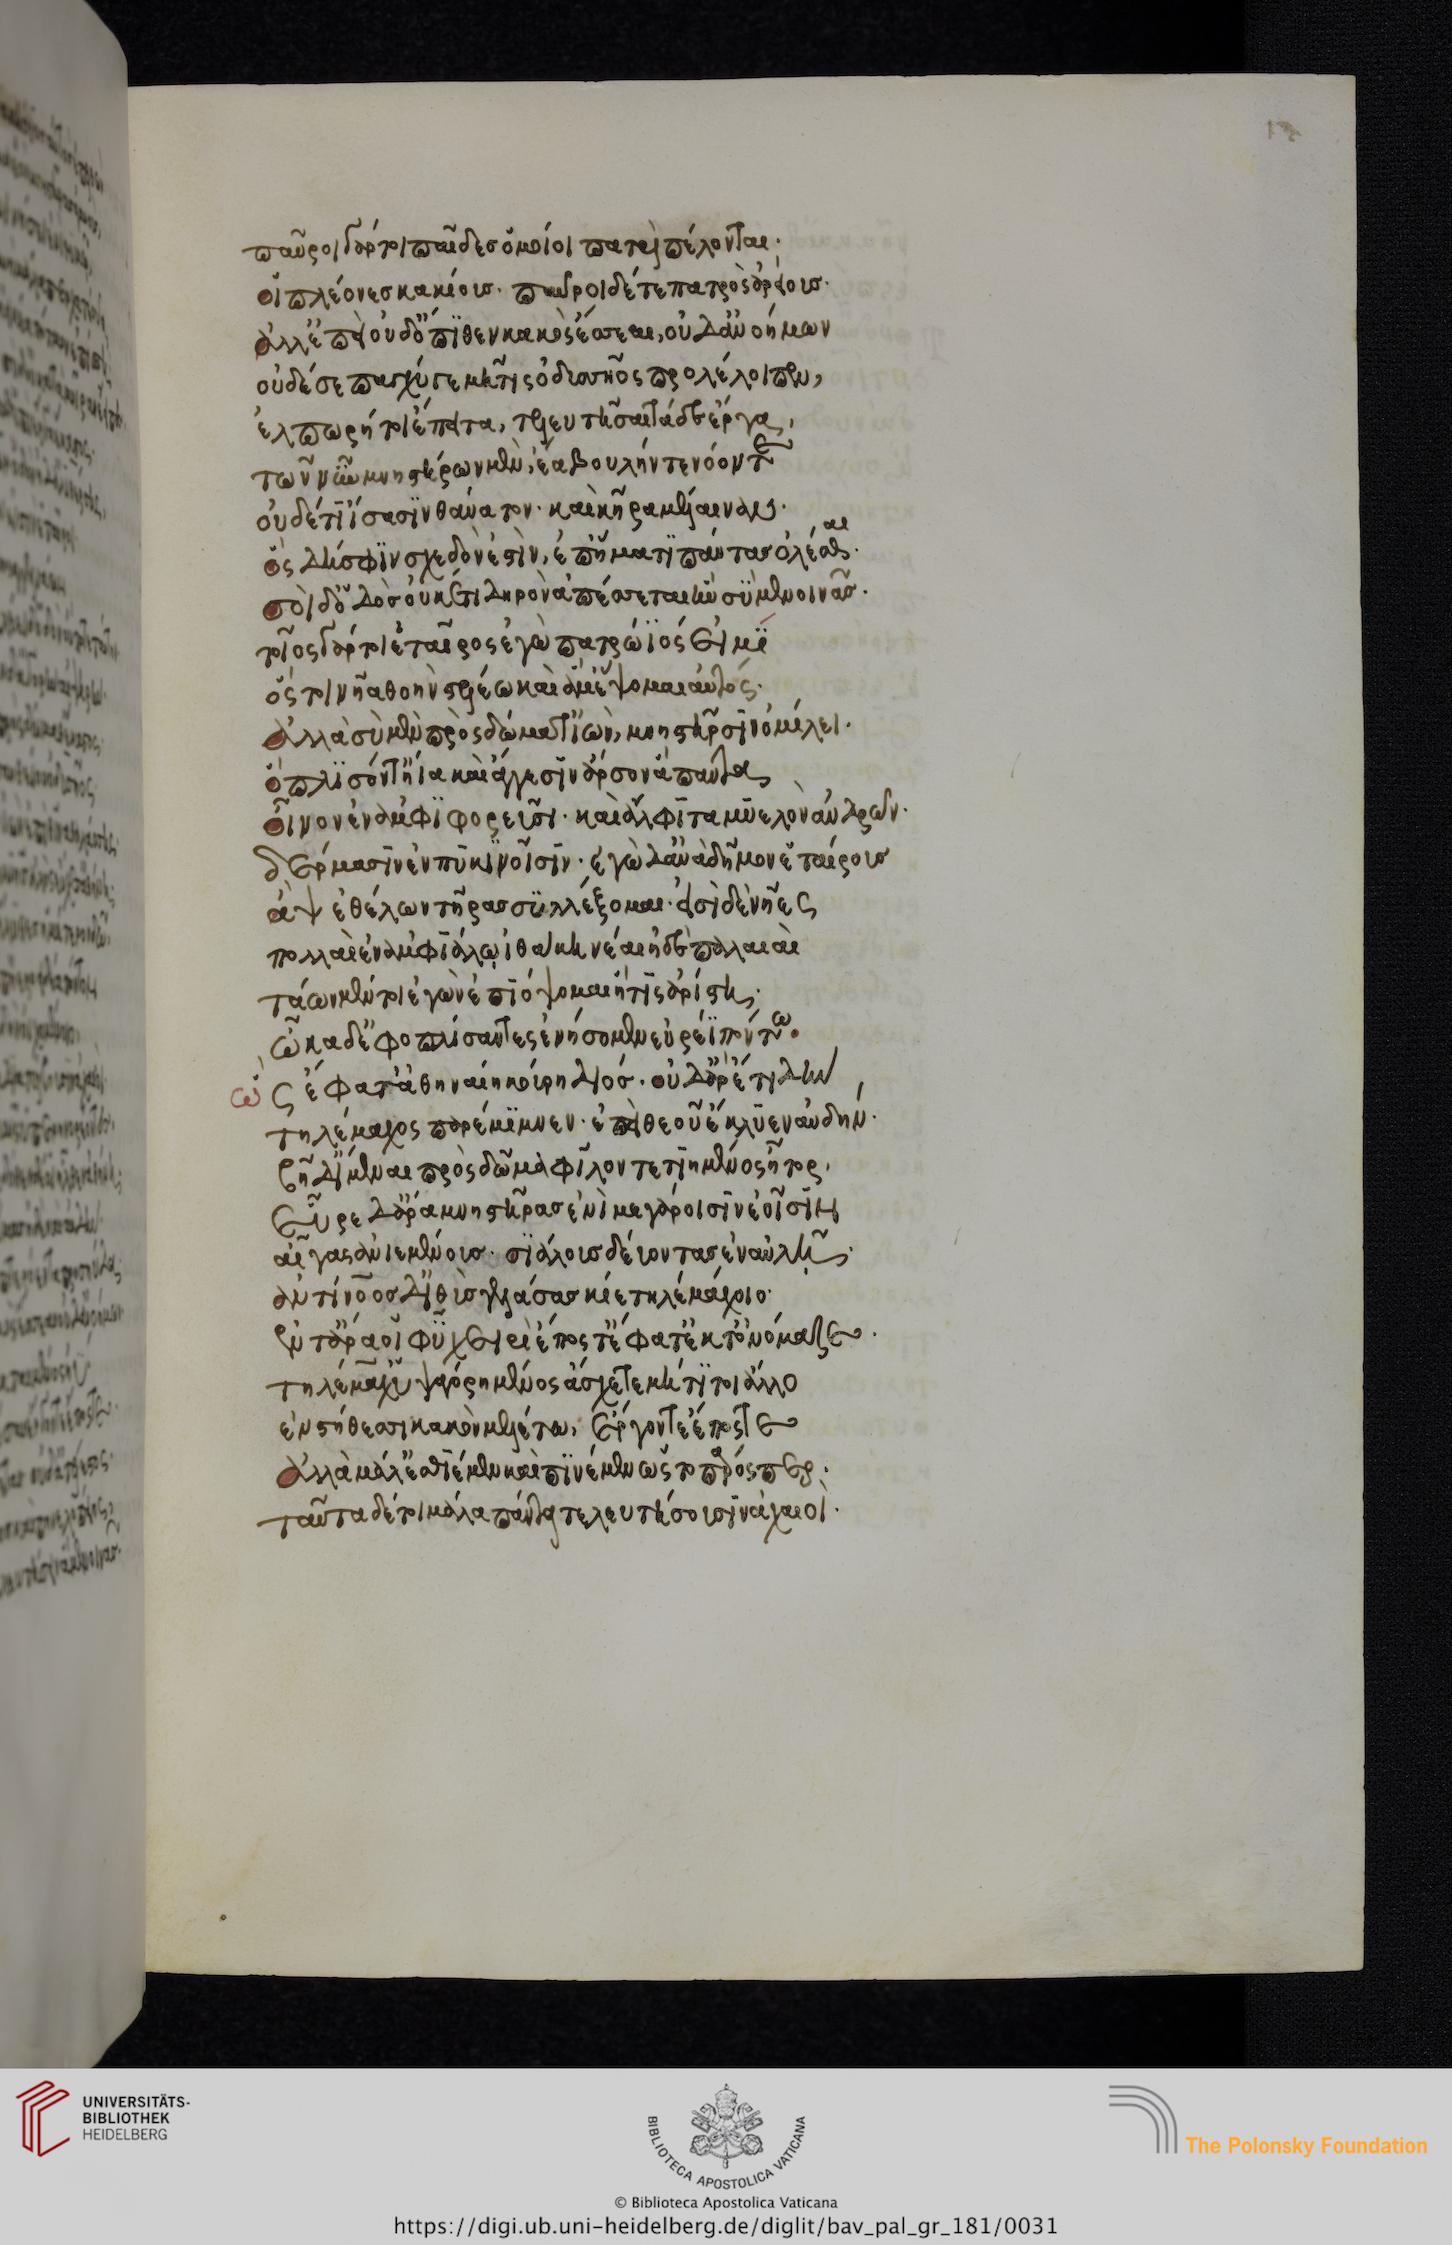 παῦροι γάρ τοι παῖδες ὁμοῖοι πατρὶ πέλονται·
οἱ πλέονες κακίους· παῦροι δέ τε πατρὸς ἀρείους·
ἀλλ' ἐπεὶ οὐδ' ὄπιθεν κακὸς ἔσσεαι, οὐδ' ἀνοήμων
οὐδέ σε παγχύ γε μῆτις ὀδυσσῆος προλέλοιπεν,
ἐλπωρή τοι ἔπειτα, τελευτῆσαι τάδε ἔργα,
τῶ νῦν μνηστήρων μὲν, ἔα βουλήν τε νόον τε
οὐδέ τι ἴσασιν θάνατον· καὶ κῆρα μέλαιναν·
ὃς δή σφιν σχεδόν ἐστιν, ἐπ' ἤματι πάντας ὀλέσθαι·
σοὶ δ' ὁδὸς οὐκέτι δηρὸν ἀπέσσεται ἣν σὺ μενοινᾶς·
τοῖος γάρ τοι ἑταῖρος ἐγὼ πατρώϊός εἰμι
ὅς τοι νῆα θοὴν στελέω καὶ ἅμ' ἕψομαι αὐτός·
ἀλλὰ σὺ μὲν πρὸς δώματ' ἰὼν, μνηστῆρσιν ὁμίλει·
ὅπλισόν τ' ἤϊα καὶ ἄγγεσιν ἄρσον ἅπαντα,
οἶνον ἐν ἀμφιφορεῦσι· καὶ ἄλφιτα μυελὸν ἀνδρῶν·
δέρμασιν ἐν πυκινοῖσιν· ἐγὼ δ' ἀνὰ δῆμον ἑταίρους
ἂψ ἐθελοντῆρας συλλέξομαι· εἰσὶ δὲ νῆες
πολλαὶ ἐν ἀμφιάλῳ ἰθάκῃ νέαι ἠδὲ παλαιαὶ
τάων μέν τοι ἐγὼν ἐπιόψομαι ἥτις ἀρίστη,
ὦκα δ' ἐφοπλίσαντες ἐνήσομεν εὐρέϊ πόντω·
ὣς ἔφατ' ἀθηναίη κούρη διός· οὐδ' ἄρ' ἔτι δὴν
τηλέμαχος παρέμιμνεν· ἐπεὶ θεοῦ ἔκλυεν αὐδήν·
βῆ δ' ἴμεναι πρὸς δῶμα φίλον τετιημένος ἦτορ,
εὗρε δ' ἄρα μνηστῆρας ἐνὶ μεγάροισιν ἑοῖσιν
αἶγας ἀνιεμένους· σιάλους δ' εὕοντας ἐν αὐλῇ·
ἀντίνοος δ' ἰθὺς γελάσας κίε τηλεμάχοιο·
ἔν τ' ἄρα οἱ φῦ χειρὶ ἔπος τ' ἔφατ' ἔκ τ' ὀνόμαζε·
τηλέμαχ' ὑψαγόρη μένος ἄσχετε μή τί τοι ἄλλο
ἐν στήθεσσι κακὸν μελέτω, ἔργον τε ἔπος τε
ἀλλὰ μάλ' ἐσθιέμεν καὶ πινέμεν ὡς τὸ πάρος περ·
ταῦτα δέ τοι μάλα πάντα τελευτήσουσιν ἀχαιοὶ·
UNIVERSITÄTS-
BIBLIOTHEK
HEIDELBERG
BIBLIOTECA APOSTOLICA VATICANA
The Polonsky Foundation
© Biblioteca Apostolica Vaticana
https://digi.ub.uni-heidelberg.de/diglit/bav_pal_gr_181/0031